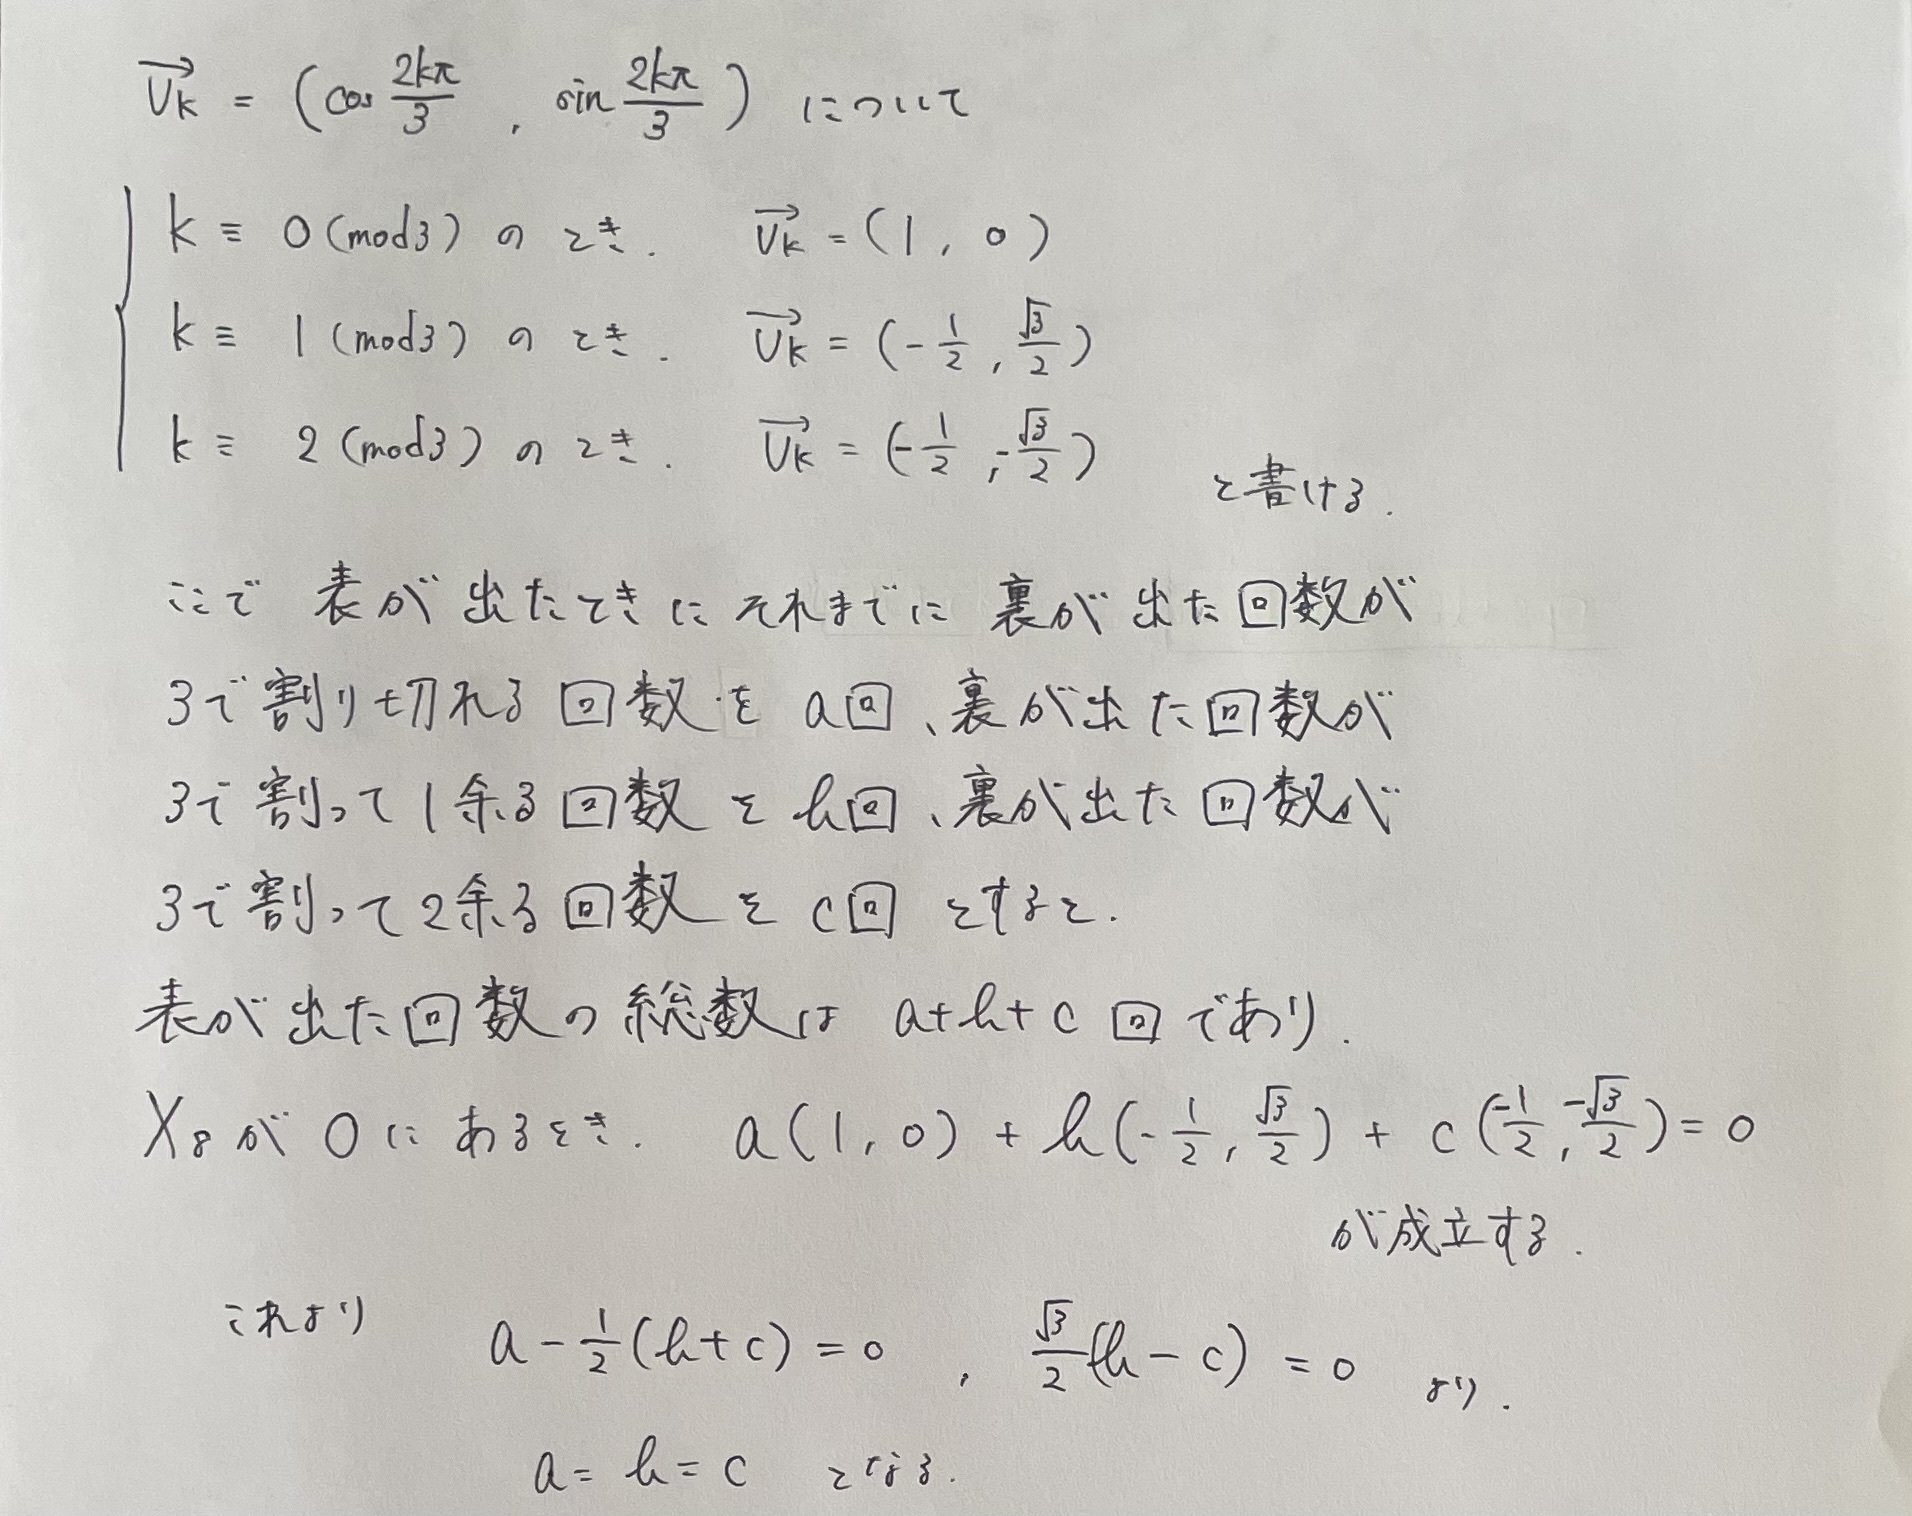 $\overrightarrow{v_k} = \left(\cos\frac{2k\pi}{3}, \sin\frac{2k\pi}{3}\right)$ について
k ≡ 0 (mod3) のとき. $\overrightarrow{v_k}$ = (1, 0)
k ≡ 1 (mod3) のとき. $\overrightarrow{v_k} = (-\frac{1}{2}, \frac{\sqrt{3}}{2})$
k ≡ 2 (mod3) のとき. $\overrightarrow{v_k} = (-\frac{1}{2}, -\frac{\sqrt{3}}{2})$
と書ける.
ここで 表が出たときに それまでに 裏が出た回数が
3で割り切れる回数を a回、裏が出た回数が
3で割って1余る回数を b回、裏が出た回数が
3で割って2余る回数を c回 とすると.
表が出た回数の総数は a+b+c 回であり.
X₈が 0 にあるとき. $a(1, 0) + b(-\frac{1}{2}, \frac{\sqrt{3}}{2}) + c(\frac{-1}{2}, \frac{-\sqrt{3}}{2}) = 0$
が成立する.
これより $a - \frac{1}{2}(b+c) = 0$ , $\frac{\sqrt{3}}{2}(b-c) = 0$ より.
a = b = c となる.